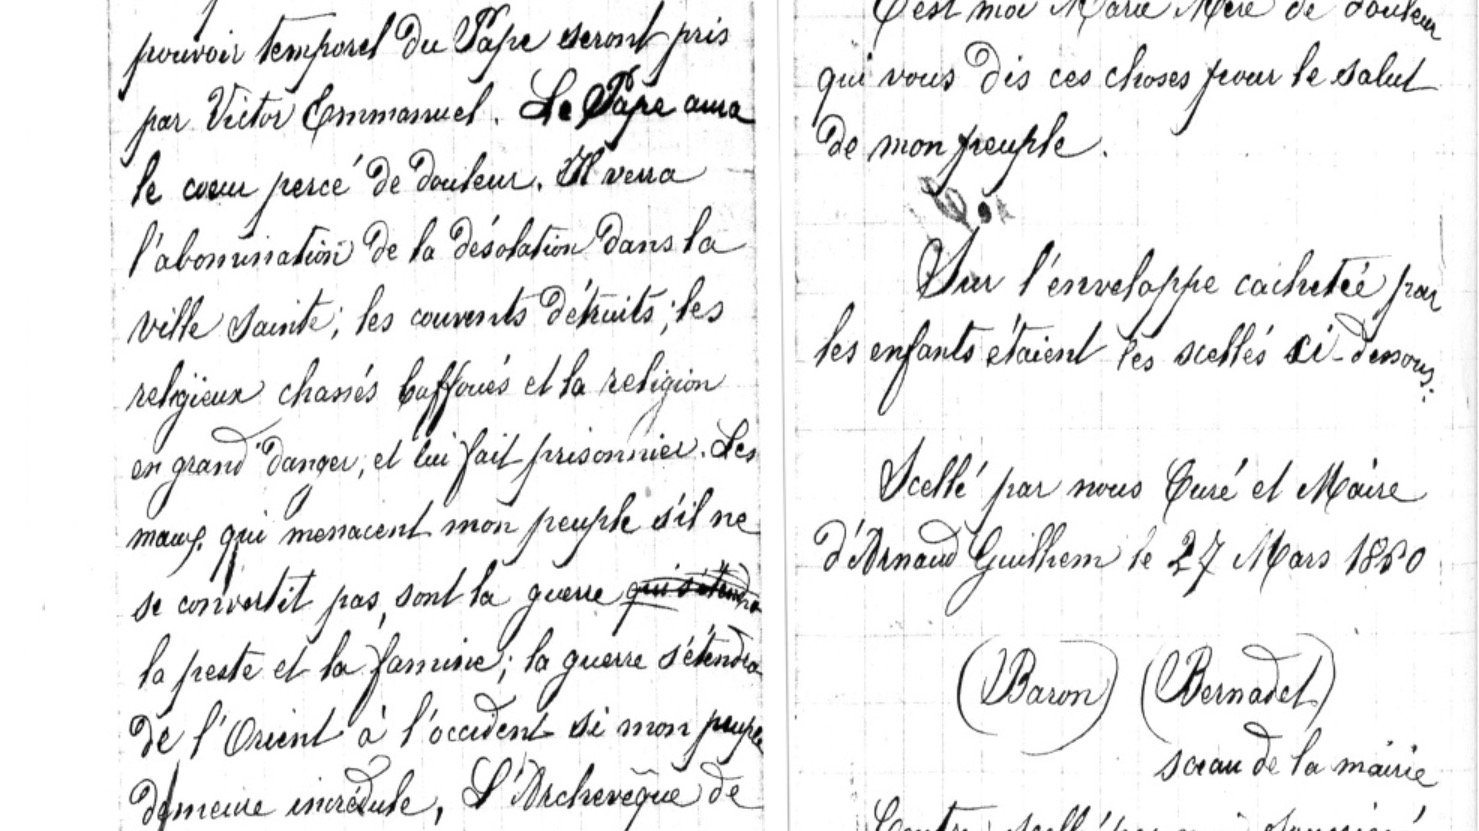 pouvoir temporel du Pape seront pris
par Victor Emmanuel. Le Pape aura
le cœur percé de douleur. Il verra
l'abomination de la désolation dans la
ville sainte; les couvents détruits; les
religieux chassés baffoués et la religion
en grand danger, et lui fait prisonnier. Les
maux qui menacent mon peuple s'il ne
se convertit pas, sont la guerre qui s'étendra
la peste et la famine; la guerre s'étendra
de l'Orient à l'occident si mon peuple
demeure incrédule, L'Archevêque de
C'est moi Marie Mère de douleur
qui vous dis ces choses pour le salut
de mon peuple.
Sur l'enveloppe cachetée par
les enfants étaient les scellés ci-dessous:
Scellé par nous Curé et Maire
d'Arnaud Guilhem le 27 Mars 1860
(Baron) (Bernadet)
sceau de la mairie